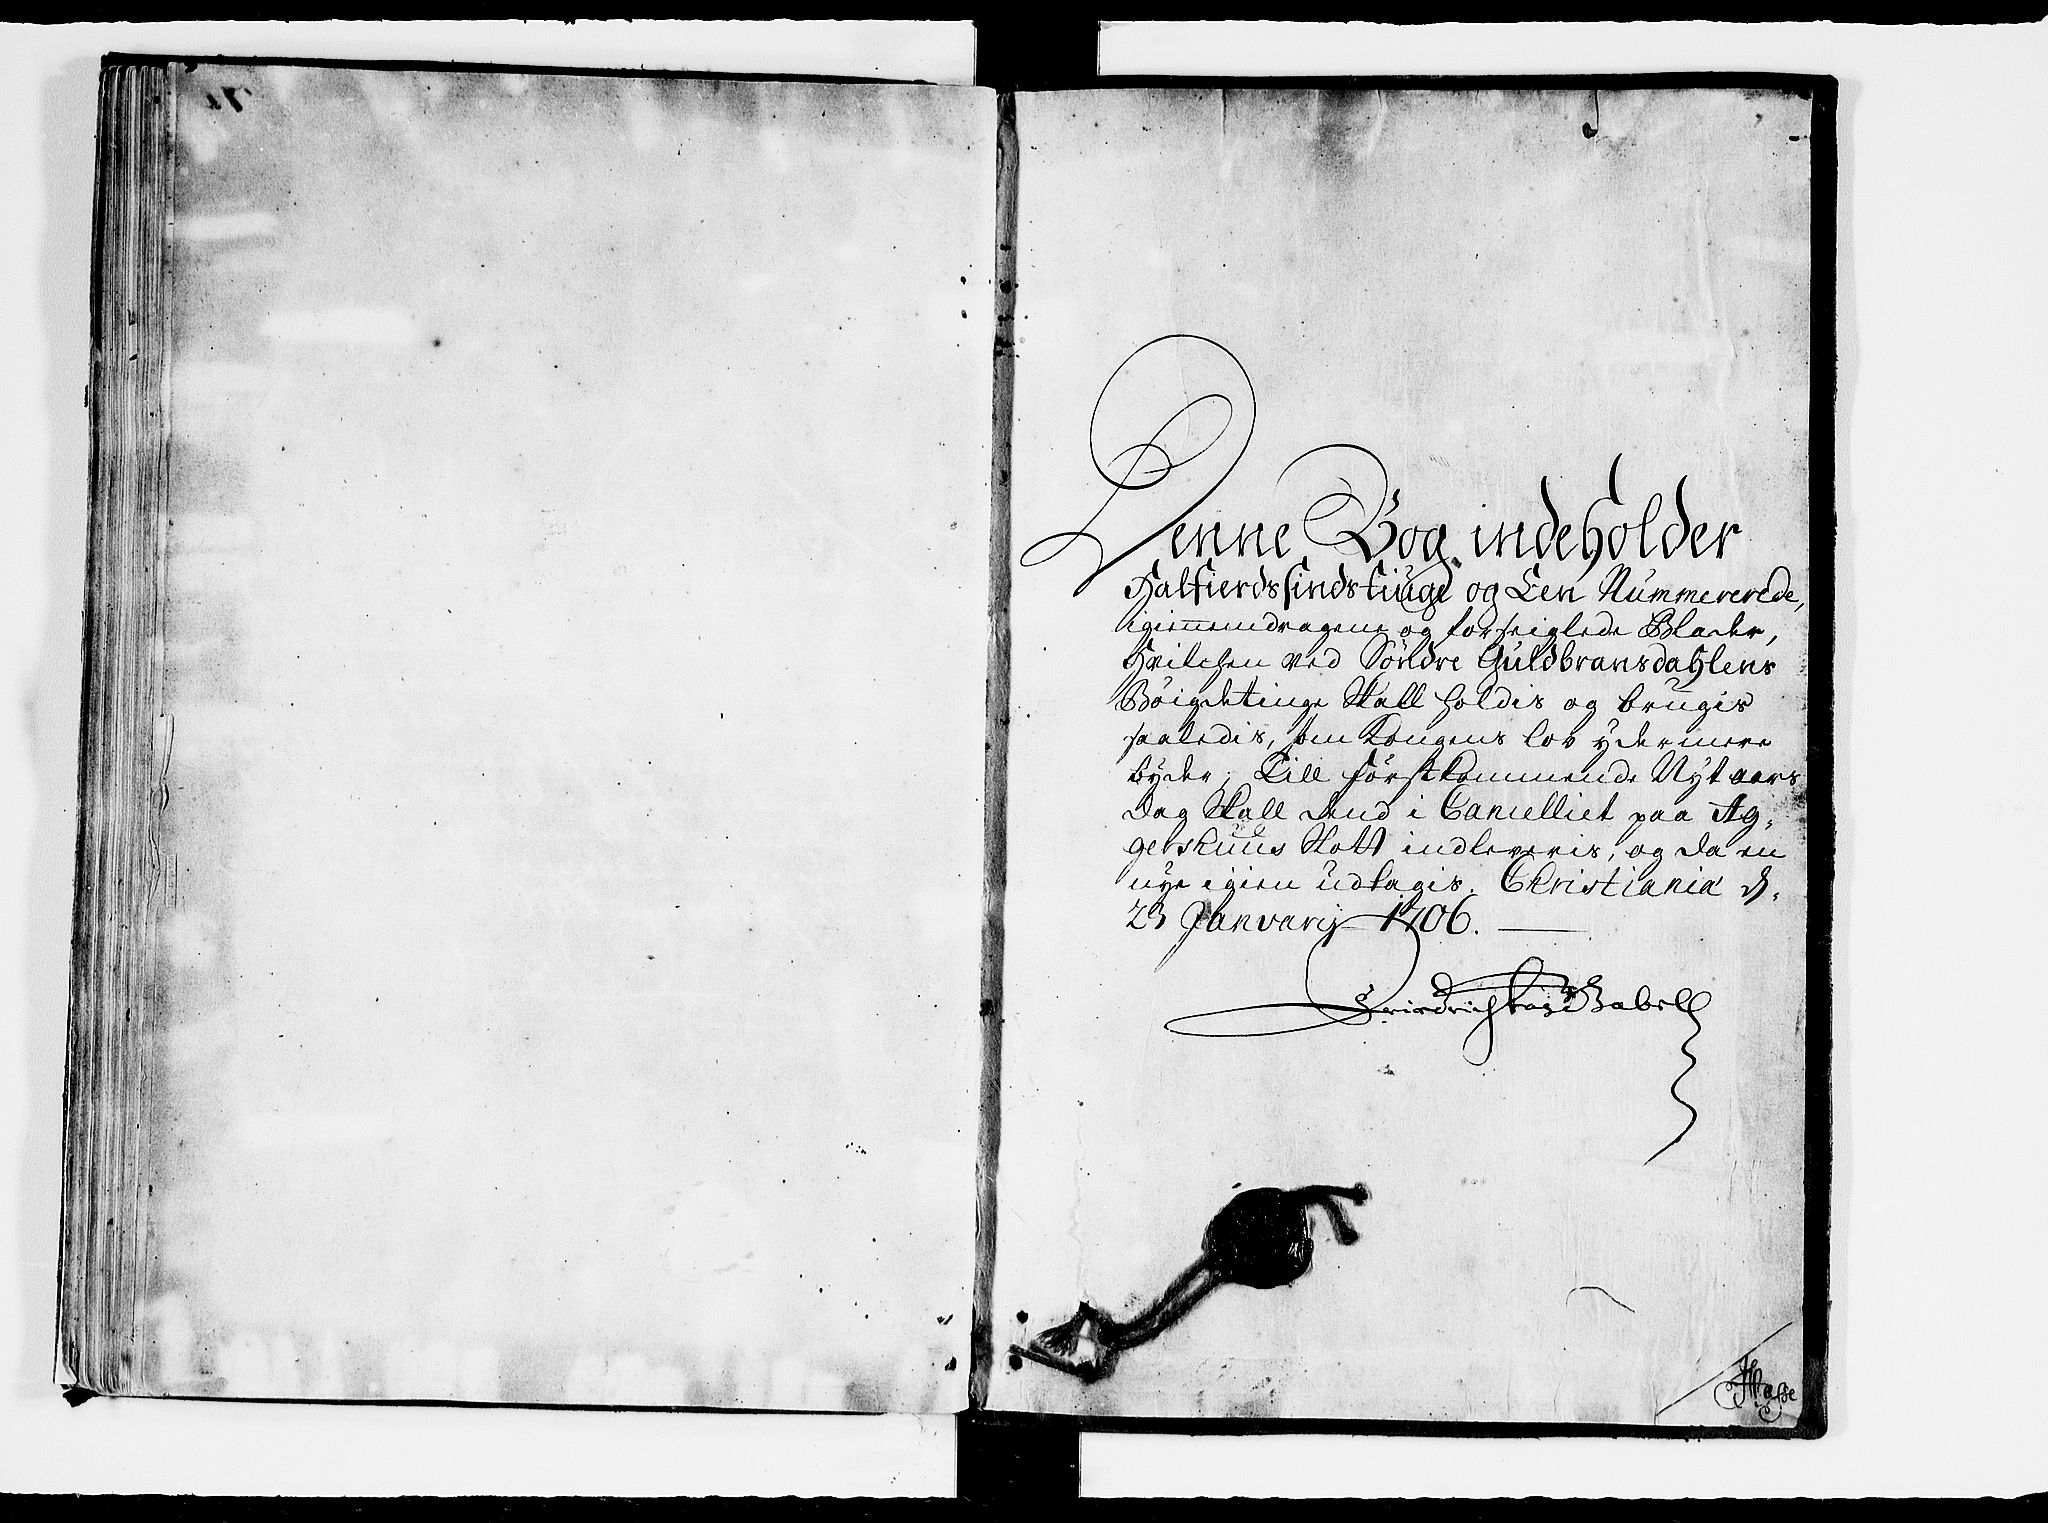 71
Denne Bog indeholder
Halfierdsindstiuge og Een Nummererede,
igiennemdragene og forseiglede Blader,
Hvilchen ved Söndre Guldbransdahlens
Böigdetinge Skall holdis og brugis
saaledis, som Kongens lov ydermere
byder; Till förstkommende Nyt aars
Dag Skall dend i Cancelliet paa Ag,
gershuus Slott indleveris, og da en
nye igien udtagis. Christiania d.
23 Januarij 1706.
Friedrich Kaas Gabell